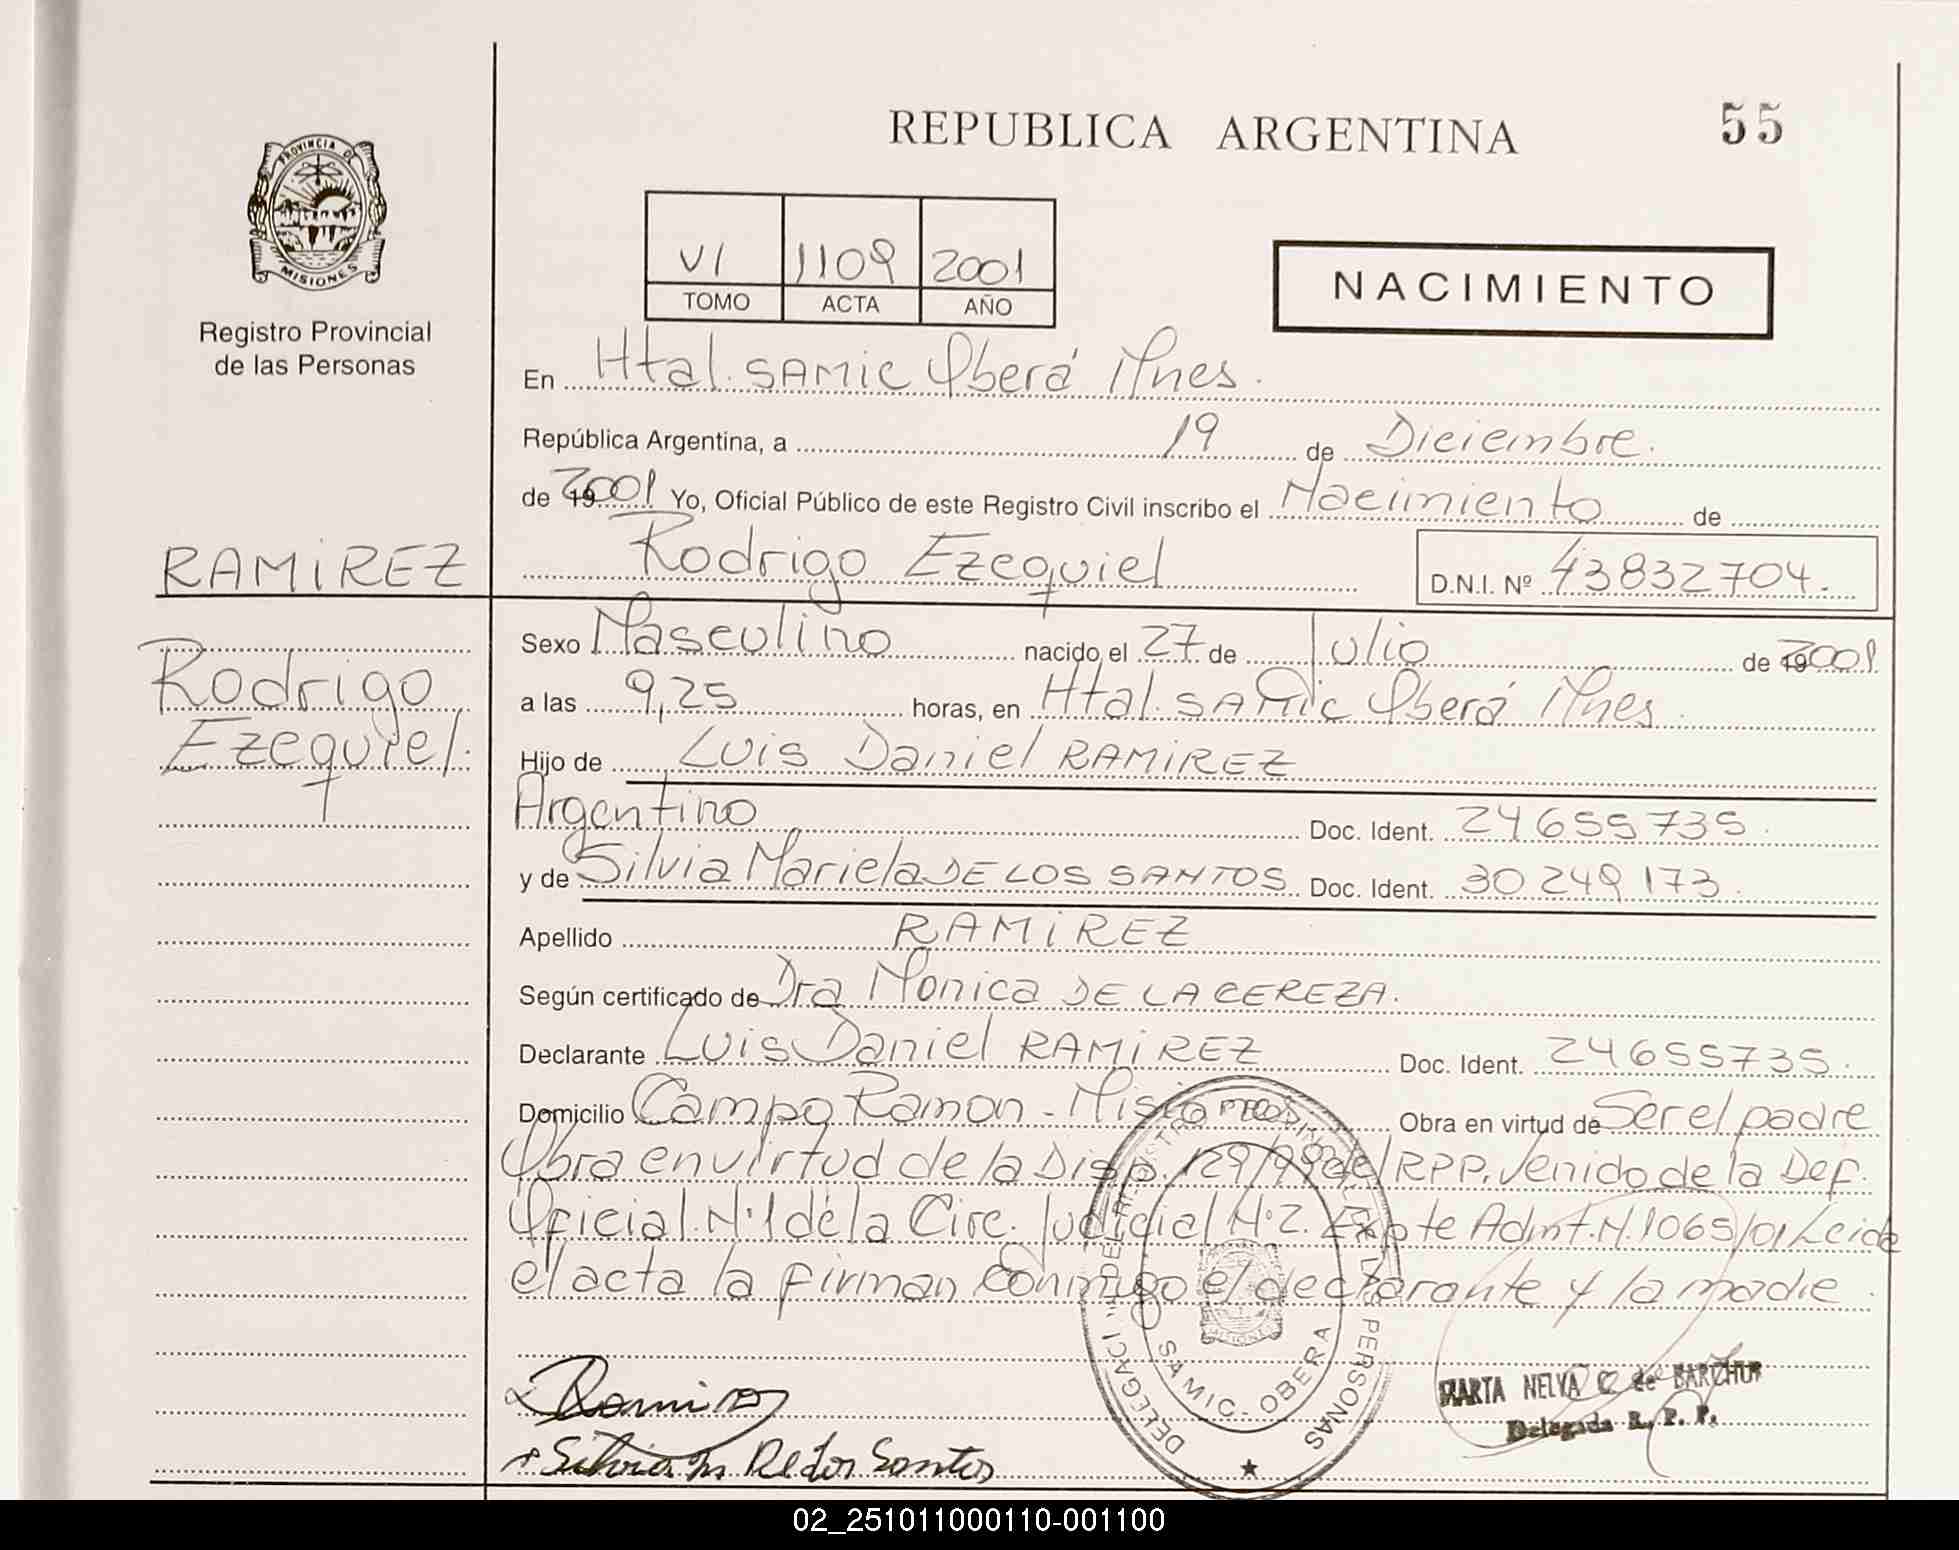 REPUBLICA ARGENTINA
55
PROVINCIA DE
MISIONES
Registro Provincial
de las Personas
VI 1109 2001
TOMO ACTA AÑO
NACIMIENTO
En Htal. SAMIC Oberá Mnes.
República Argentina, a 19 de Diciembre.
de 2001 Yo, Oficial Público de este Registro Civil inscribo el Nacimiento de
RAMIREZ
Rodrigo Ezequiel D.N.I. Nº 43832704.
Rodrigo
Ezequiel.
Sexo Masculino nacido el 27 de Julio de 2001
a las 9,25 horas, en Htal. SAMIC Oberá Mnes.
Hijo de Luis Daniel RAMIREZ
Argentino Doc. Ident. 24655735.
y de Silvia Mariela DE LOS SANTOS Doc. Ident. 30249173.
Apellido RAMIREZ
Según certificado de Dra Monica DE LA CEREZA.
Declarante Luis Daniel RAMIREZ Doc. Ident. 24655735.
Domicilio Campo Ramon - Misiones Obra en virtud de Ser el padre
Obra en virtud de la Disp. 129/99 del RPP. Venido de la Def.
Oficial. Nº1 de la Circ. Judicial Nº2. Expte Admt. N.1065/01 Leida
el acta la firman conmigo el declarante y la madre.
Ramirez
Silvia M De los Santos
SAMIC - OBERA
PERSONAS
MARTA NELVA C. de
Delegada R. P. P.
02_251011000110-001100